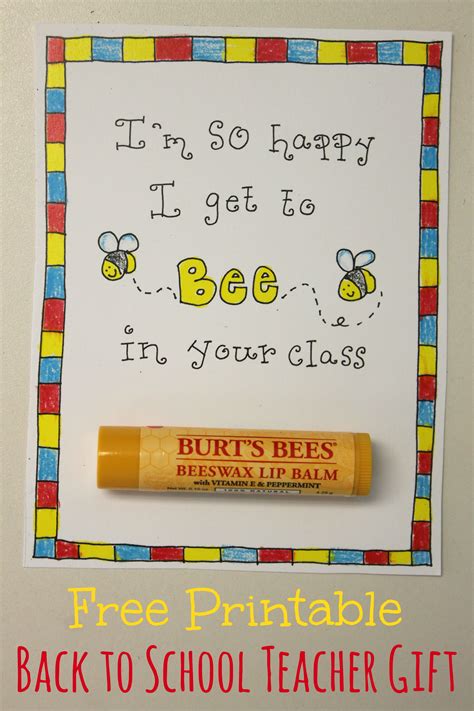 I'm so happy
I get to
Bee
in your class
BURT'S BEES
BEESWAX LIP BALM
with VITAMIN E & PEPPERMINT
100% NATURAL
Free Printable
BACK TO SCHOOL TEACHER GIFT